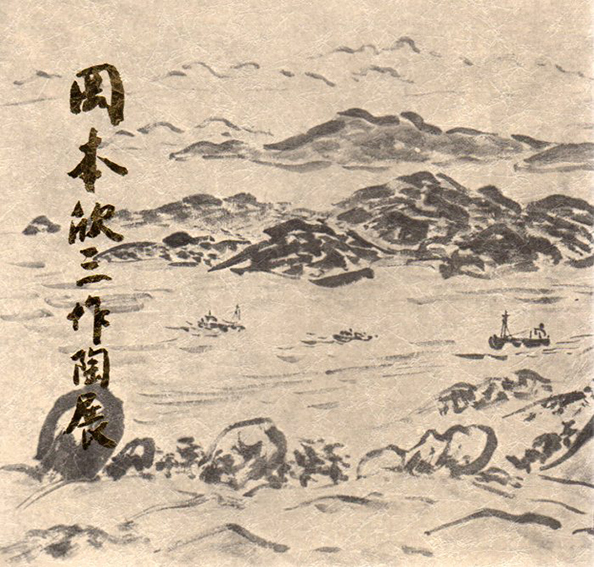 岡本欣三作陶展